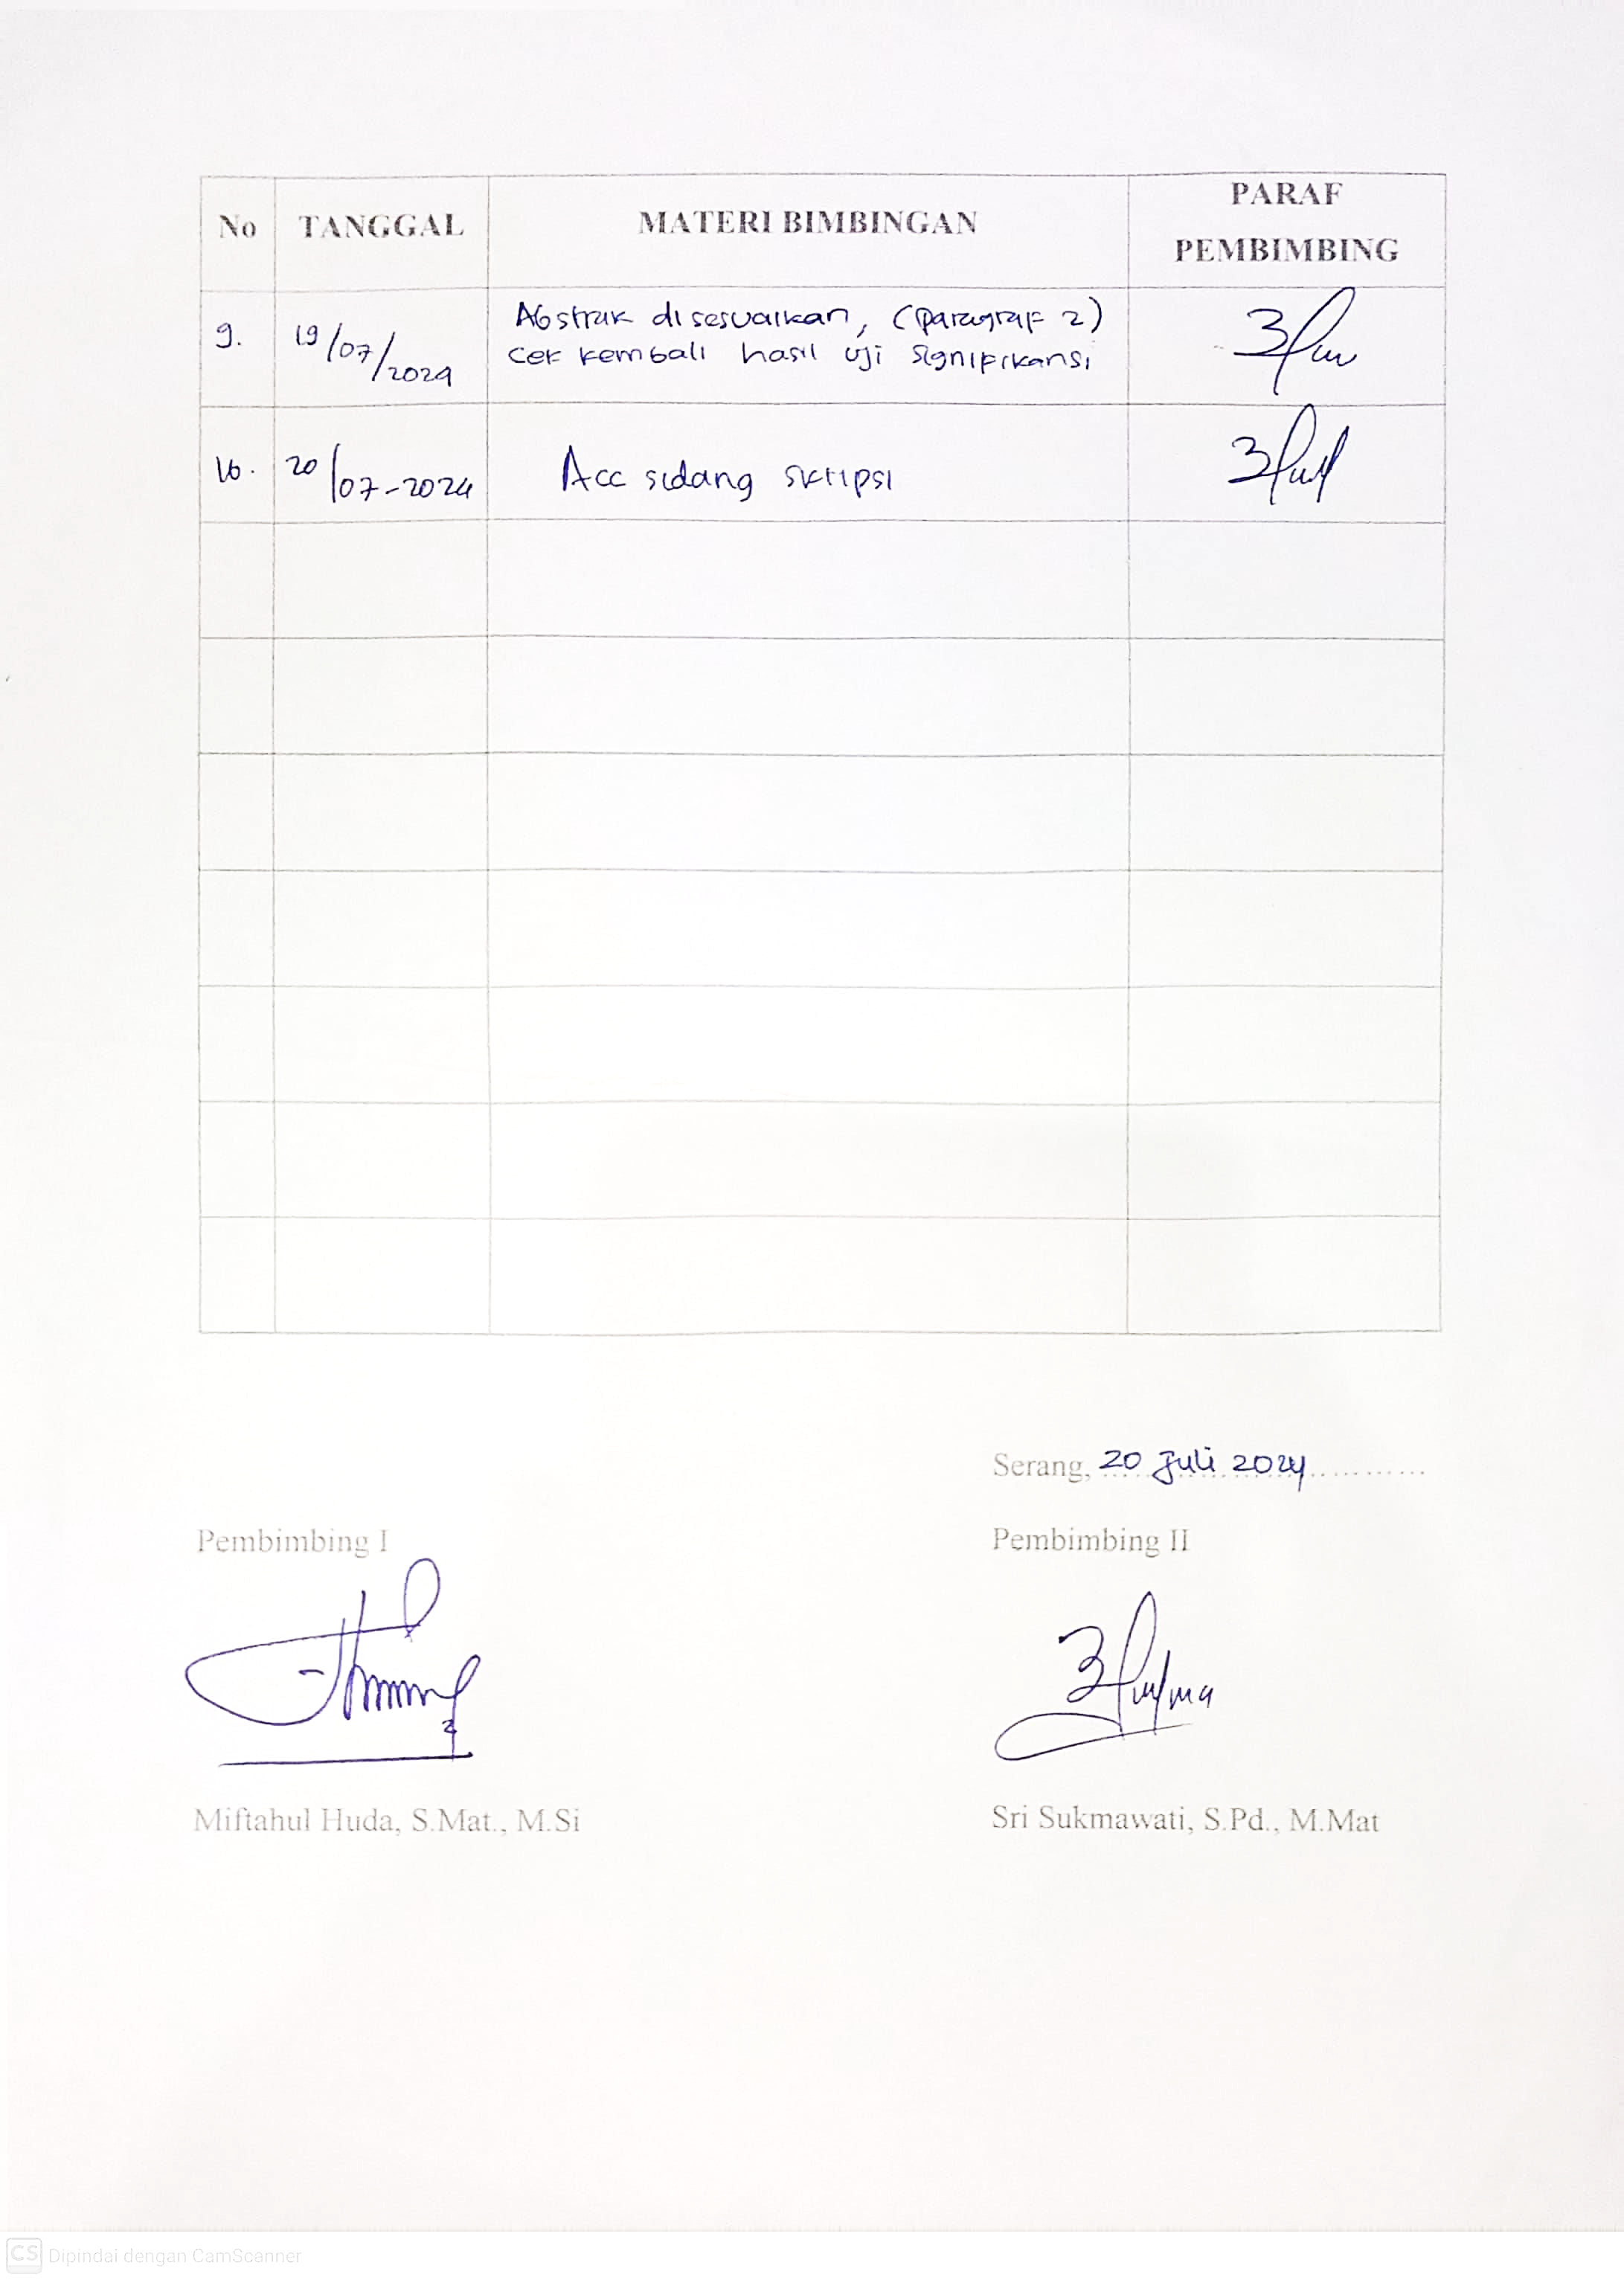 No TANGGAL MATERI BIMBINGAN PARAF PEMBIMBING
9. 19/07/2024 Abstrak disesuaikan, (paragraf 2)
cek kembali hasil uji signifikansi
10. 20/07-2024 Acc sidang skripsi
Serang, 20 Juli 2024
Pembimbing I Pembimbing II
Miftahul Huda, S.Mat., M.Si Sri Sukmawati, S.Pd., M.Mat
CS Dipindai dengan CamScanner